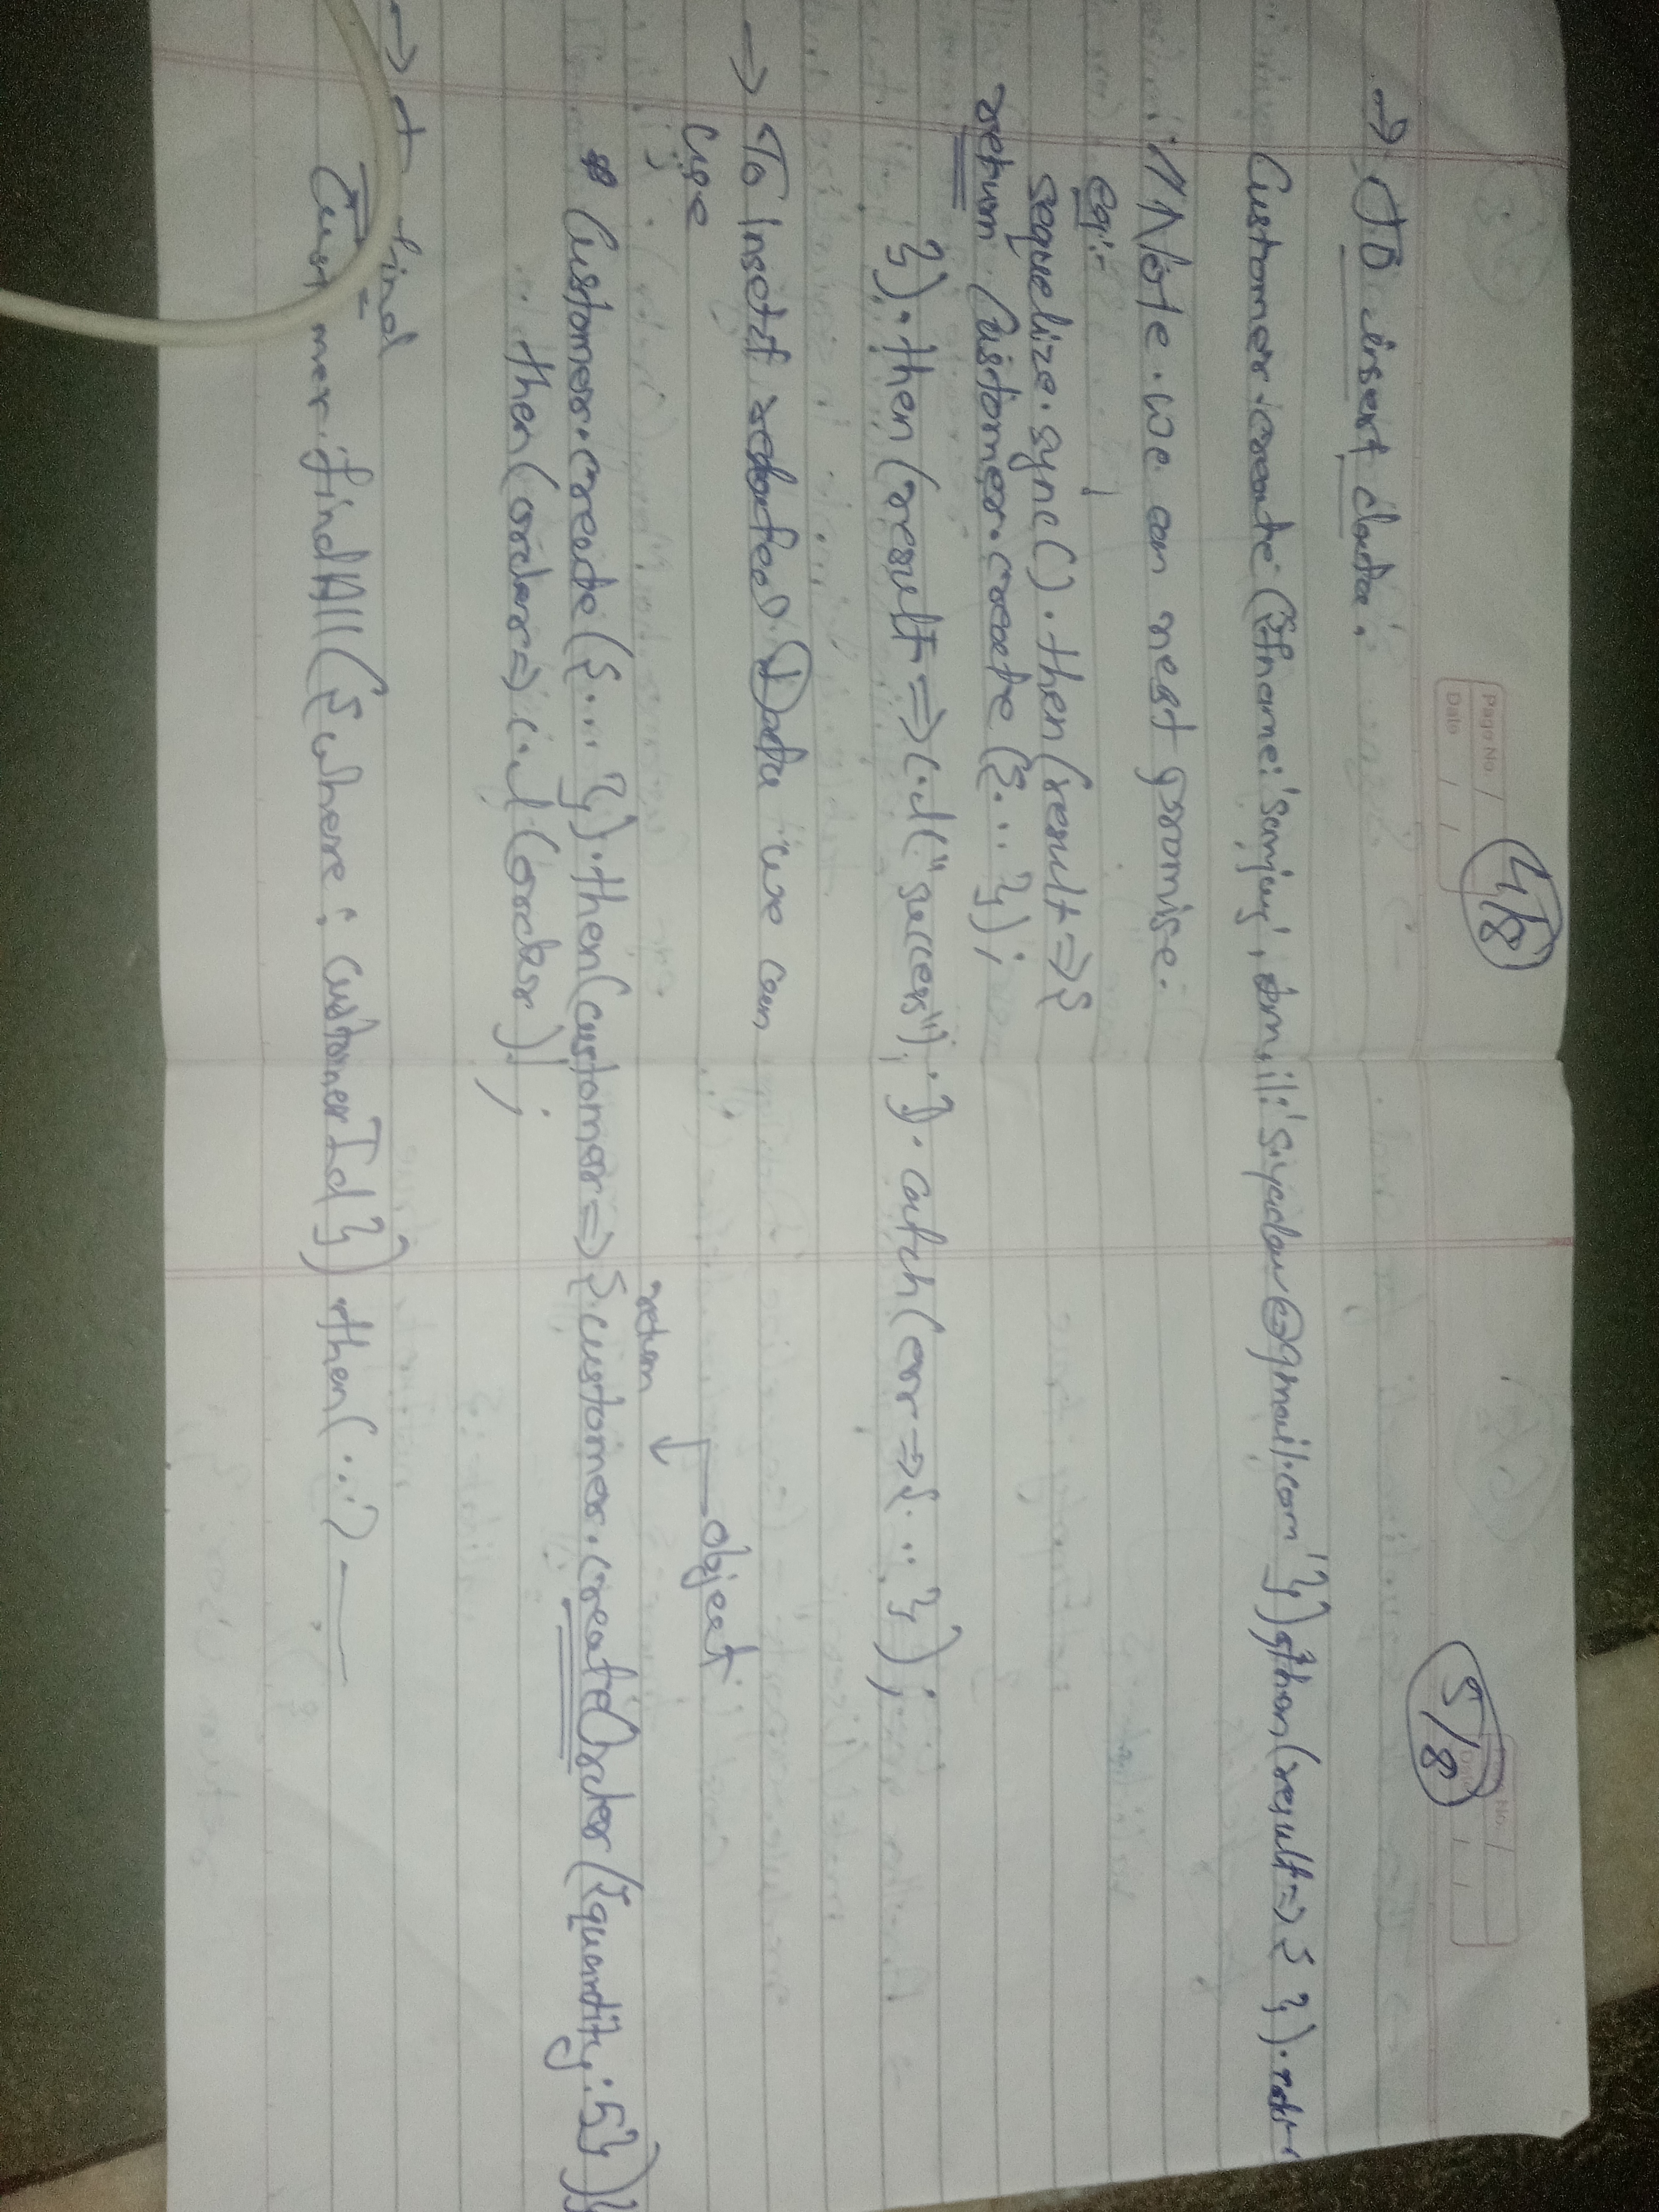 4/8
5/8
Page No
Date / /
No.
→ To insert data.
Customer.create({fname:'Sanjay', email:'s.yadav@gmail.com'}).then(result=>{ }).catch
// Note. we can nest promise.
eg:-
sequelize.sync().then(result=>{
return Customer.create({...});
}).then(result=>c.l("success");}).catch(err=>{...});
→ To Insert related Data we can
use
return ↓ object
* Customer.create({...}).then(customer=>{customer.createOrder({quantity:5})}
then(order=>c.l(order));
→ find
Customer.findAll({where: customerId}).then(...)